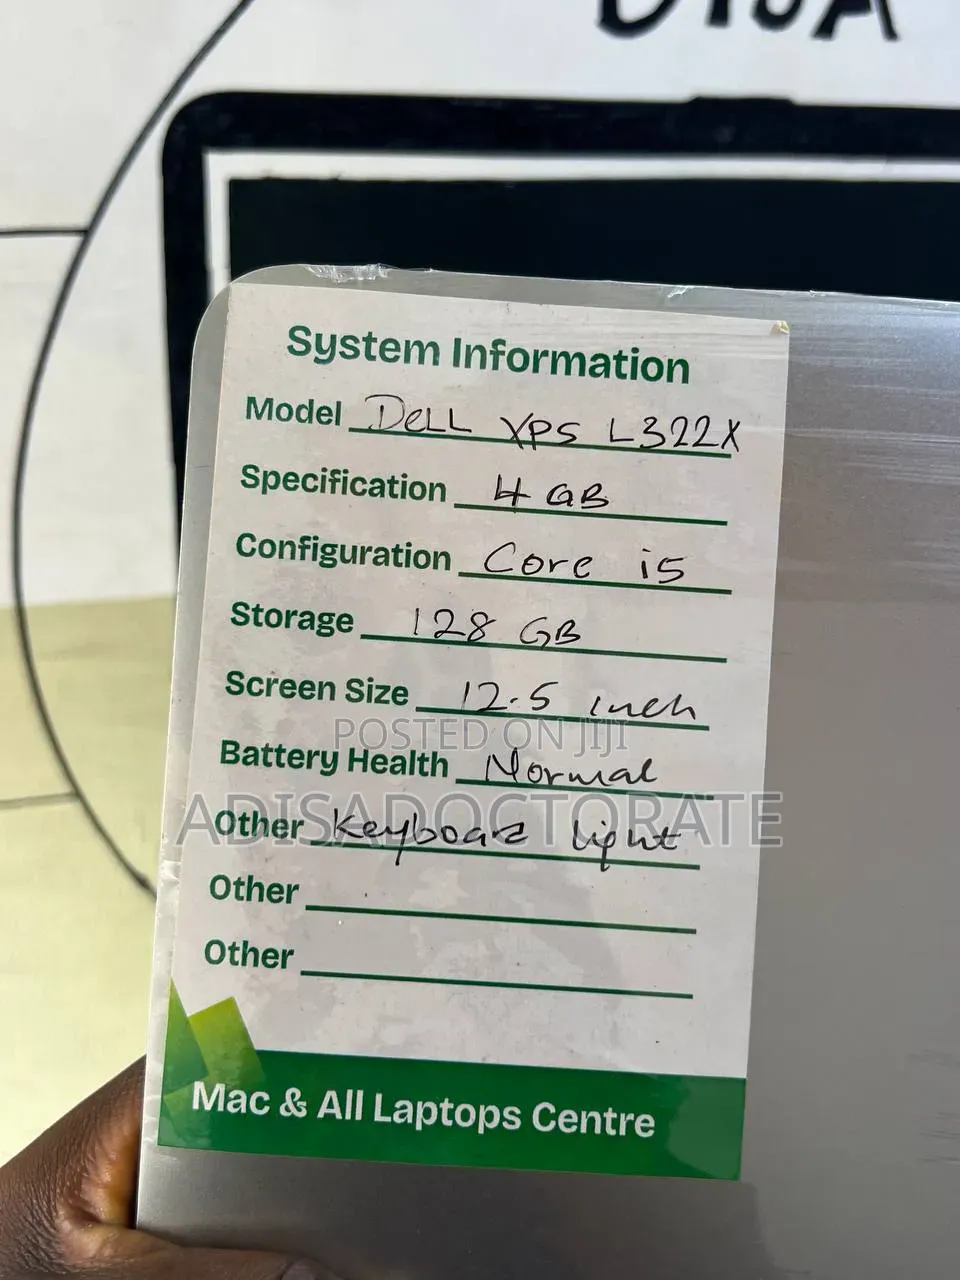 System Information
Model Dell XPS L322X
Specification 4 GB
Configuration Core i5
Storage 128 GB
Screen Size 12.5 inch
POSTED ON JIJI
Battery Health Normal
ADISADOCTORATE
Other Keyboard light
Other
Other
Mac & All Laptops Centre